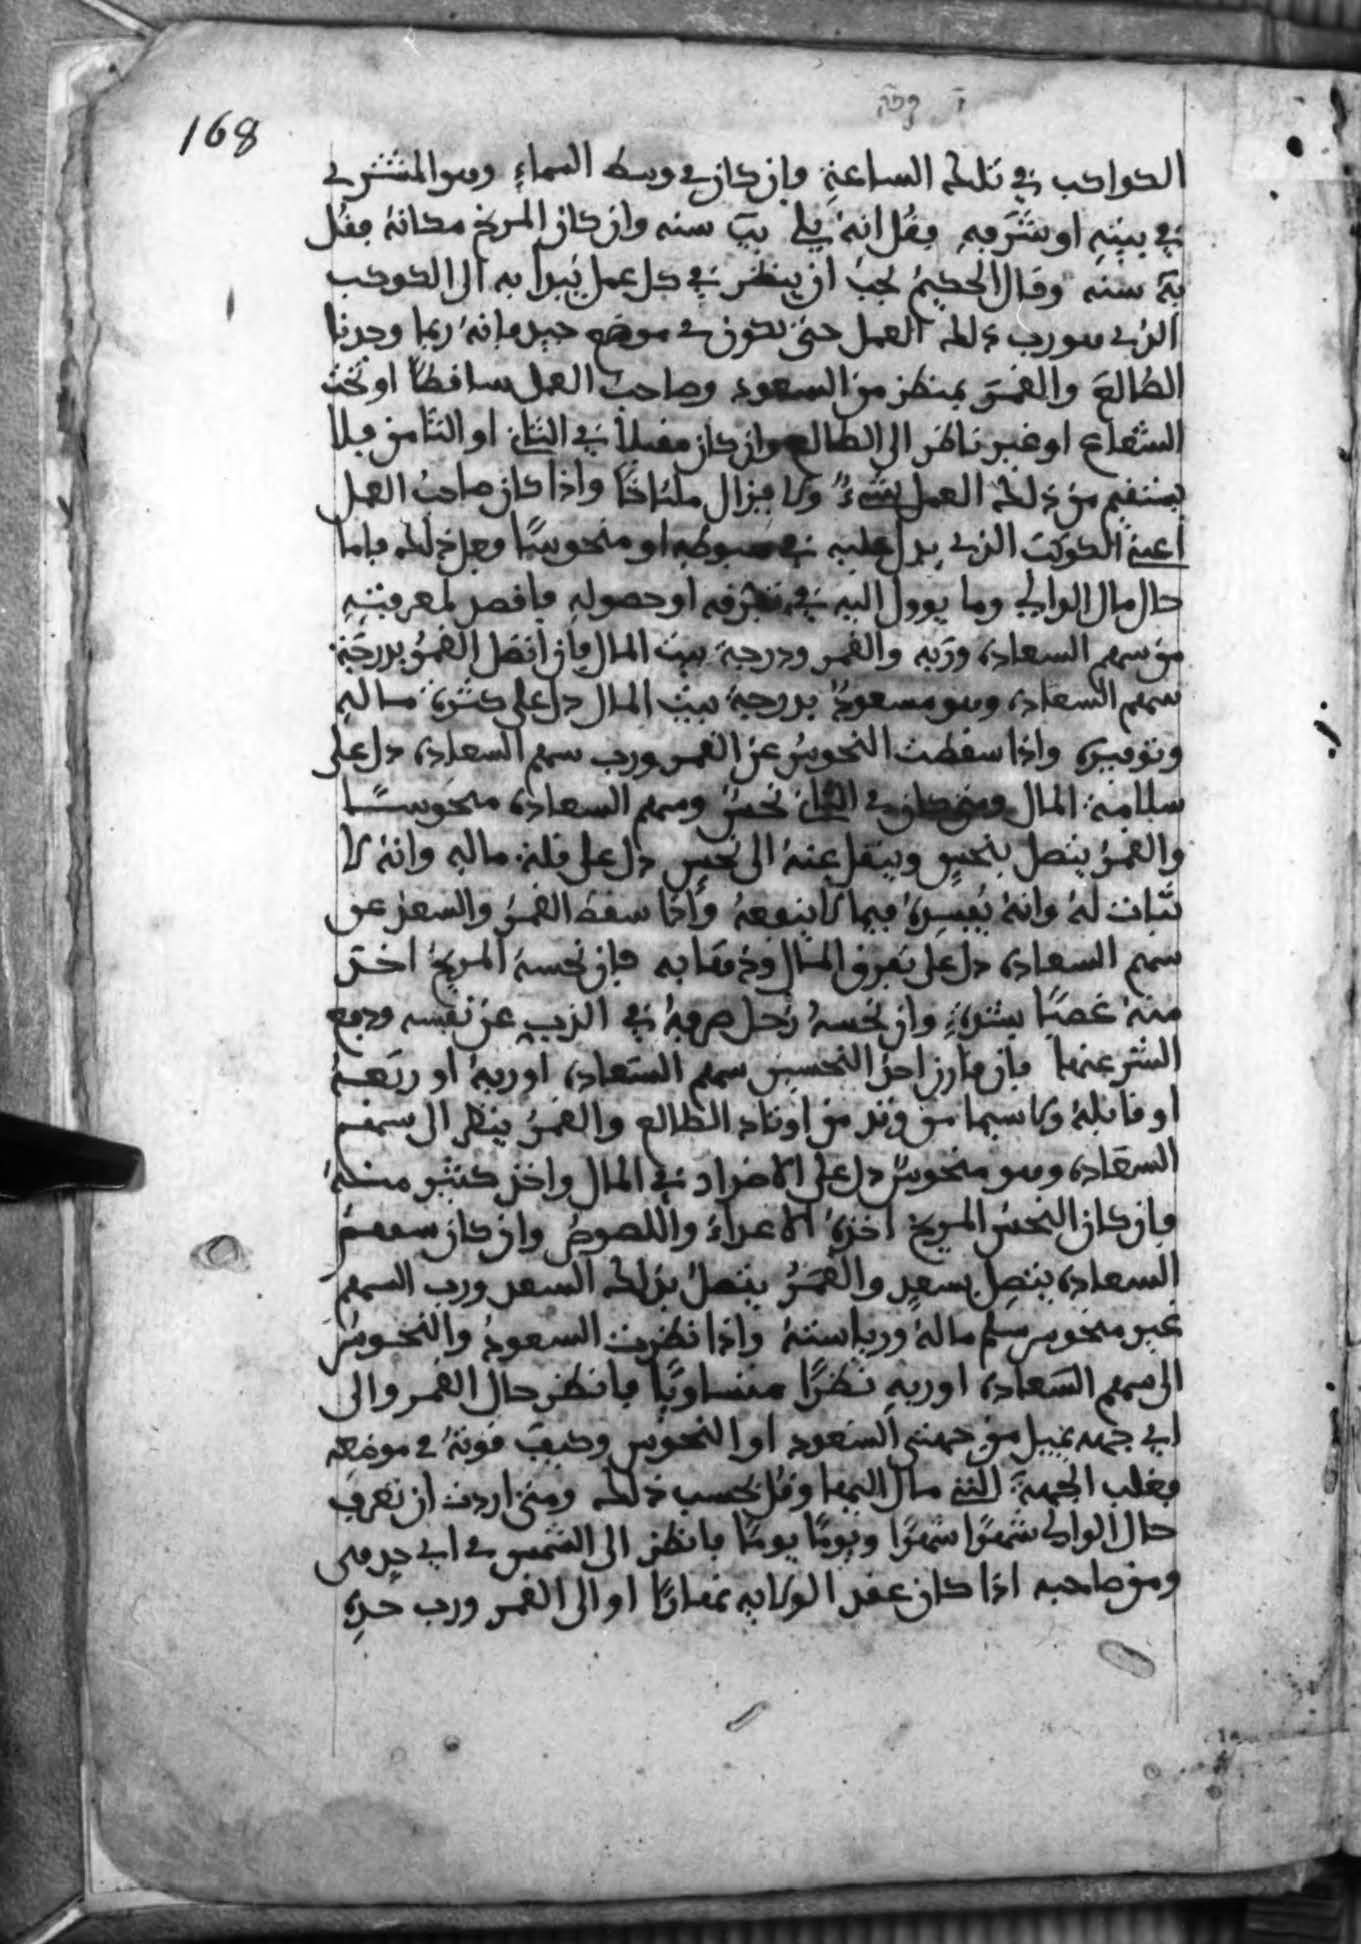 168
الكواكب في تلك الساعة وان كان في وسط السماء وهو المشتري
في بيته او شرفه فقل انه يلي يب سنه وان كان المريخ مكانه فقل
يه سنه وقال الحكيم يجب ان ينظر في كل عمل يبدا به الى الكوكب
الذي هو رب ذلك العمل حتى تكون في موضع جيد فانه ربما وجدنا
الطالع والقمر بمنظر من السعود وصاحب العمل ساقطا او تحت
الشعاع او غير ناظر الى الطالع وان كان مقبلا في الثاني او الثامن فلا
ينتفع من ذلك العمل بشيء ولا يزال ملتاخا واذا كان صاحب العمل
اعني الكوكب الذي يدل عليه في هبوطه او منحوسا فعل ذلك فاما
حال مال الوالي وما يوول اليه في تفرقه او حصوله فاقصد لمعرفته
من سهم السعادة وربه والقمر ودرجة بيت المال فان اتصل القمر بدرجة
سهم السعادة وهو مسعود بدرجة بيت المال دل على كثرة ماله
وتوفيره واذا سقطت النحوس عن القمر ورب سهم السعادة دل على
سلامة المال ومتى كان في الثاني نحس وسهم السعادة منحوسا
والقمر يتصل بنحس وينتقل عنه الى نحس دل على قلة ماله وانه لا
ثبات له وانه يفسده فيما لا ينفعه واذا سقط القمر والسعد عن
سهم السعادة دل على تفرق المال وذهابه فان نحسه المريخ اخذ
منه غصبا بشدة وان نحسه زحل صرفه في الذب عن نفسه ودفع
الشر عنها فان قارن احد النحسين سهم السعادة او ربه او ربعه
او قابله ولا سيما من وتد من اوتاد الطالع والقمر ينظر الى سهم
السعادة وهو منحوس دل على الاضرار في المال واخذ كثير منه
فان كان النحس المريخ اخذه الاعداء واللصوص وان كان سهم
السعادة يتصل بسعد والقمر يتصل بذلك السعد ورب السهم
غير منحوس سلم ماله ورياسته واذا نظرت السعود والنحوس
الى سهم السعادة او ربه نظرا متساويا فانظر حال القمر والى
اي جهة يميل من جهتي السعود او النحوس وكيف قوته في موضعه
فغلب الجهة التي مال اليها وقل بحسب ذلك ومتى اردت ان تعرف
حال الوالي شهرا شهرا ويوما يوما فانظر الى الشمس في اي حد هي
ومن صاحبه اذا كان عقد الولاية نهارا او الى القمر ورب حده